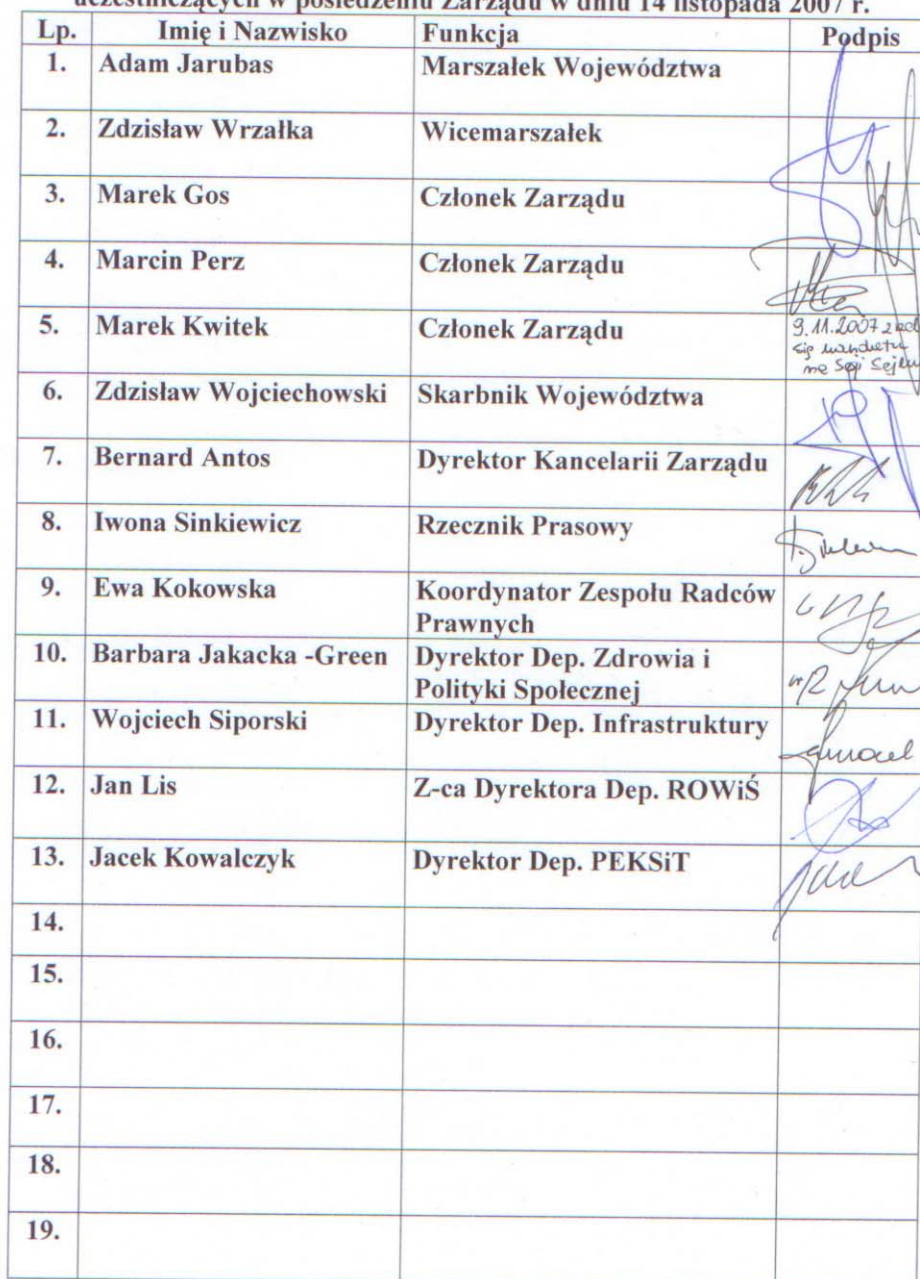 uczestniczących w posiedzeniu Zarządu w dniu 14 listopada 2007 r.
Lp. Imię i Nazwisko Funkcja Podpis
1. Adam Jarubas Marszałek Województwa
2. Zdzisław Wrzałka Wicemarszałek
3. Marek Gos Członek Zarządu
4. Marcin Perz Członek Zarządu
5. Marek Kwitek Członek Zarządu
9.11.2007
się mandatu
Sejmu
6. Zdzisław Wojciechowski Skarbnik Województwa
7. Bernard Antos Dyrektor Kancelarii Zarządu
8. Iwona Sinkiewicz Rzecznik Prasowy
9. Ewa Kokowska Koordynator Zespołu Radców
Prawnych
10. Barbara Jakacka -Green Dyrektor Dep. Zdrowia i
Polityki Społecznej
11. Wojciech Siporski Dyrektor Dep. Infrastruktury
12. Jan Lis Z-ca Dyrektora Dep. ROWiŚ
13. Jacek Kowalczyk Dyrektor Dep. PEKSiT
14.
15.
16.
17.
18.
19.